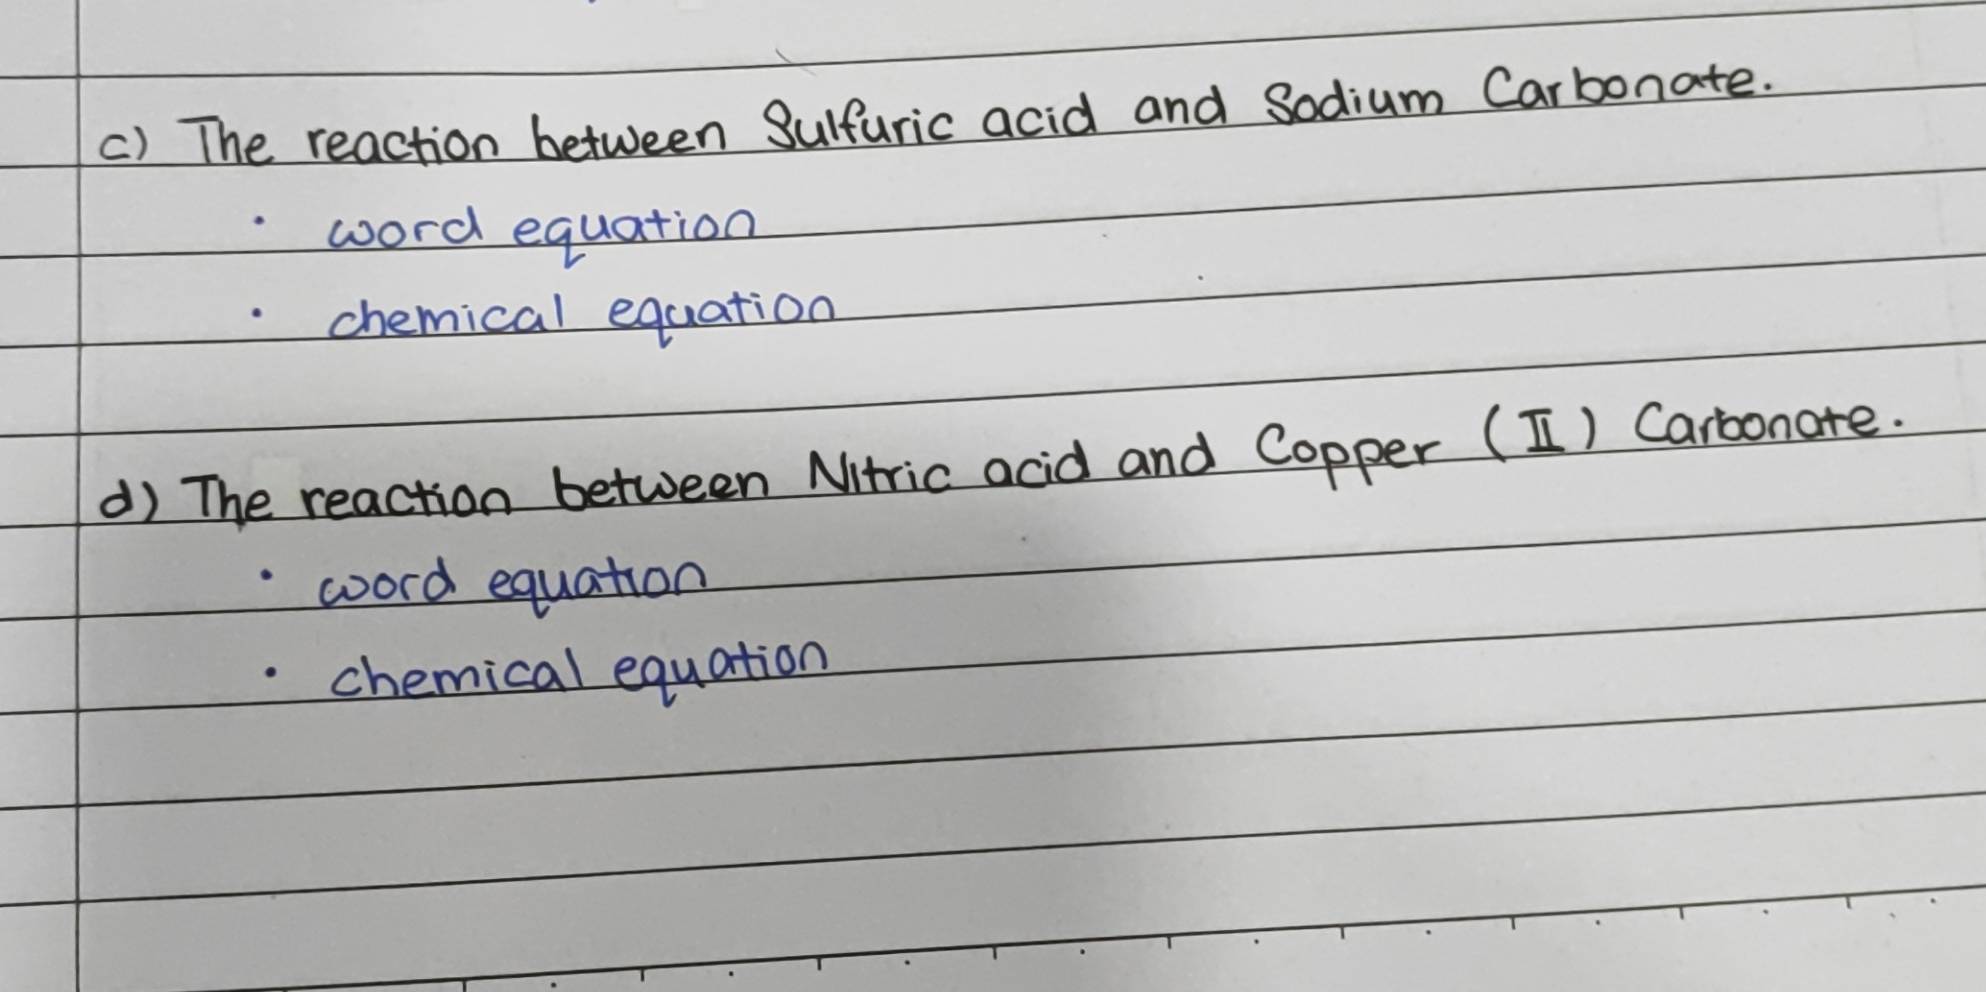 c) The reaction between Sulfuric acid and Sodium Carbonate.
• word equation
• chemical equation
d) The reaction between Nitric acid and Copper (II) Carbonate.
• word equation
• chemical equation